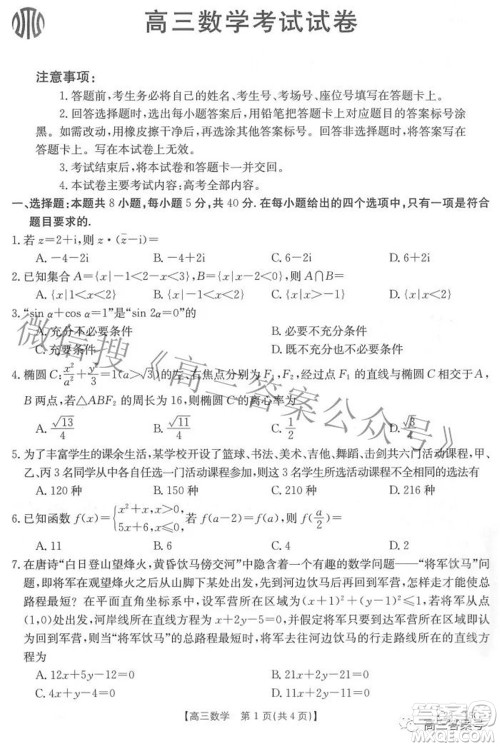 高三数学考试试卷
注意事项：
1.答题前，考生务必将自己的姓名、考生号、考场号、座位号填写在答题卡上。
2.回答选择题时，选出每小题答案后，用铅笔把答题卡上对应题目的答案标号涂
黑。如需改动，用橡皮擦干净后，再选涂其他答案标号。回答非选择题时，将答案写在
答题卡上。写在本试卷上无效。
3.考试结束后，将本试卷和答题卡一并交回。
4.本试卷主要考试内容：高考全部内容。
一、选择题：本题共8小题，每小题5分，共40分.在每小题给出的四个选项中，只有一项是符合
题目要求的.
1.若z=2+i，则z·(z̄-i)=
A.-4-2i B.-4+2i C.6-2i D.6+2i
2.已知集合A={x|-1<2-x<3}，B={x|x<2}，则A∩B=
A.{x|1<x<2} B.{x|-1<x<2} C.{x|x>-1} D.{x|x<3}
3.“sin α+cos α=1”是“sin 2α=0”的
A.充分不必要条件 B.必要不充分条件
C.充要条件 D.既不充分也不必要条件
4.椭圆C:x²/a²+y²/3=1(a>√3)的左、右焦点分别为F₁,F₂，经过点F₁的直线与椭圆C相交于A，
B两点，若△ABF₂的周长为16，则椭圆C的离心率为
A.√13/4 B.√11/4 C.1/2 D.
5.为了丰富学生的课余生活，某学校开设了篮球、书法、美术、吉他、舞蹈、击剑共六门活动课程，甲、
乙、丙3名同学从中各自任选一门活动课程参加，则这3名学生所选活动课程不全相同的选法有
A.120种 B.150种 C.210种 D.216种
6.已知函数f(x)={x²+x,x>0, x+6,x<0,若f(a-2)=f(a)，则f(a/2)=
A.11 B.6 C.4 D.2
7.在唐诗“白日登山望烽火，黄昏饮马傍交河”中隐含着一个有趣的数学问题——“将军饮马”问
题，即将军在观望烽火之后从山脚下某处出发，先到河边饮马再回到军营，怎样走才能使总
路程最短？在平面直角坐标系中，设军营所在区域为(x+1)²+(y-1)²≤1，若将军从点
(1,0)出发，河岸线所在直线方程为x+2y-5=0，则“将军饮马”的总路程最短时，将军去往河边饮马的行走路线所在的直线方程
为
A.12x+5y-12=0 B.21x+2y-21=0
C.12x-5y-12=0 D.4x+y-4=0
【高三数学 第1页(共4页)】
微信搜《高三答案公众号》
高三答案号